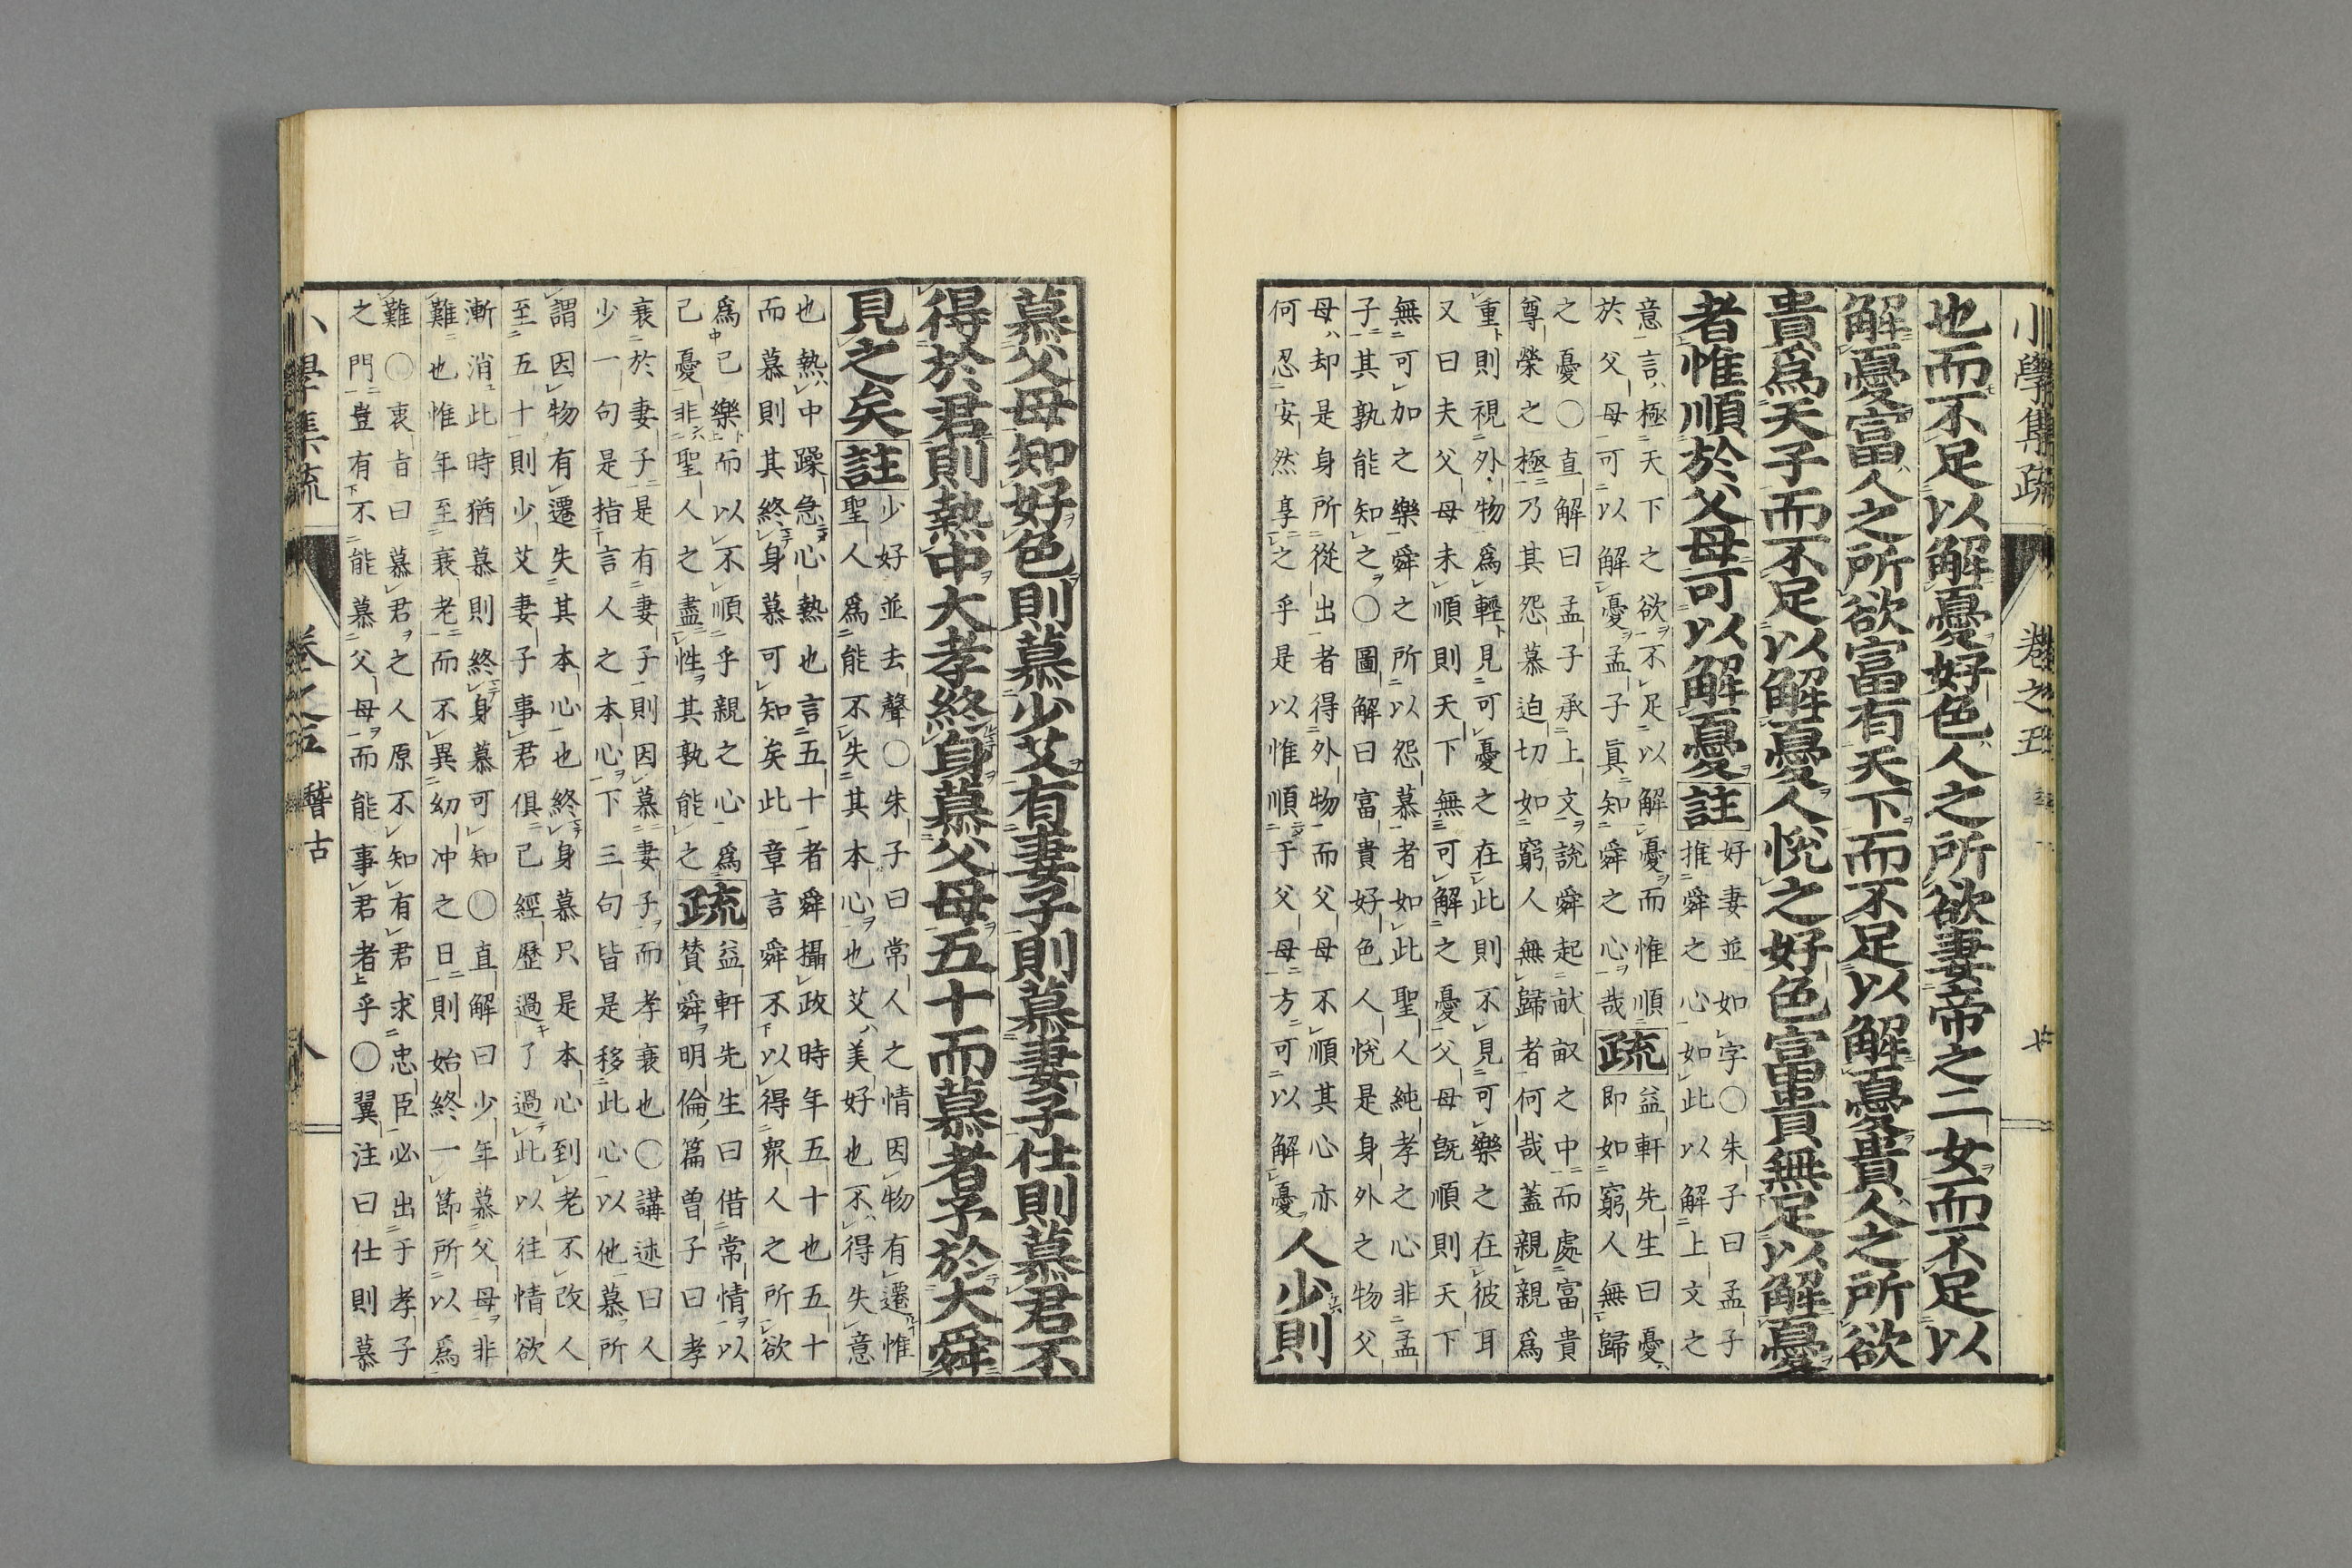 小學集疏 卷之五 七
也而不足以解憂好色人之所欲妻帝之二女而不足以
解憂富人之所欲富有天下而不足以解憂貴人之所欲
貴爲天子而不足以解憂人悅之好色富貴無足以解憂
者惟順於父母可以解憂註好妻並如字○朱子曰孟子
推舜之心如此以解上文之
意言極天下之欲不足以解憂而惟順
於父母可以解憂孟子眞知舜之心哉疏益軒先生曰憂
即如窮人無歸
之憂○直解曰孟子承上文說舜起畎畝之中而處富貴
尊榮之極乃其怨慕迫切如窮人無歸者何哉蓋親親爲
重則視外物爲輕見可憂之在此則不見可樂之在彼耳
又曰夫父母未順則天下無可解之憂父母旣順則天下
無可加之樂舜之所以怨慕者如此聖人純孝之心非孟
子其孰能知之○圖解曰富貴好色人悅是身外之物父
母却是身所從出者得外物而父母不順其心亦
何忍安然享之乎是以惟順于父母方可以解憂人少則
慕父母知好色則慕少艾有妻子則慕妻子仕則慕君不
得於君則熱中大孝終身慕父母五十而慕者予於大舜
見之矣註少好並去聲○朱子曰常人之情因物有遷惟
聖人爲能不失其本心也艾美好也不得失意
也熱中躁急心熱也言五十者舜攝政時年五十也五十
而慕則其終身慕可知矣此章言舜不以得衆人之所欲
爲己樂而以不順乎親之心爲
己憂非聖人之盡性其孰能之疏益軒先生曰借常情以
賛舜明倫篇曽子曰孝
衰於妻子是有妻子則因慕妻子而孝衰也○講述曰人
少一句是指言人之本心下三句皆是移此心以他慕所
謂因物有遷失其本心也終身慕只是本心到老不改人
至五十則少艾妻子事君俱已經歷過了過此以往情欲
漸消此時猶慕則終身慕可知○直解曰少年慕父母非
難也惟年至衰老而不異幼冲之日則始終一節所以爲
難○衷旨曰慕君之人原不知有君求忠臣必出于孝子
之門豈有不能慕父母而能事君者乎○翼注曰仕則慕
小學集疏 卷之五 稽古 八